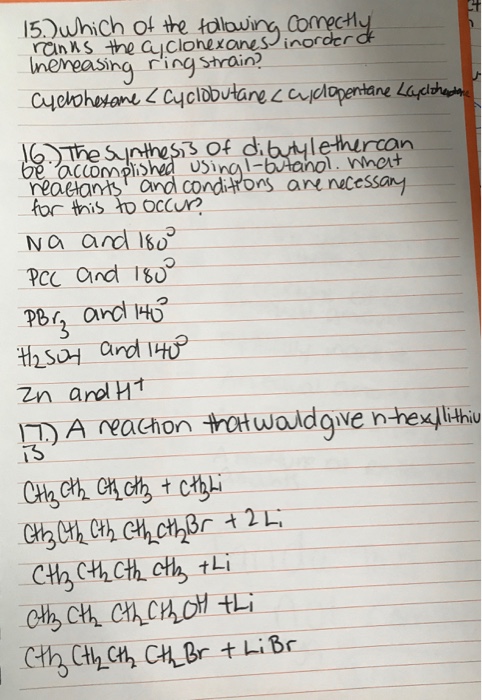 15.) which of the following correctly
ranks the cyclohexanes in order of
increasing ring strain?
cyclohexane < cyclobutane < cyclopentane <
16.) The synthesis of dibutylether can
be accomplished using 1-butanol. what
reactants and conditions are necessary
for this to occur?
Na and 180°
PCC and 180°
PBr3 and 140°
H2SO4 and 140°
Zn and H+
17.) A reaction that would give n-hexyllithiu
is
CH3 CH2 CH2 CH3 + CH3Li
CH3 CH2 CH2 CH2 CH2Br + 2Li
CH3 CH2 CH2 CH3 + Li
CH3 CH2 CH2 CH2 OH + Li
CH3 CH2 CH2 CH2 Br + LiBr